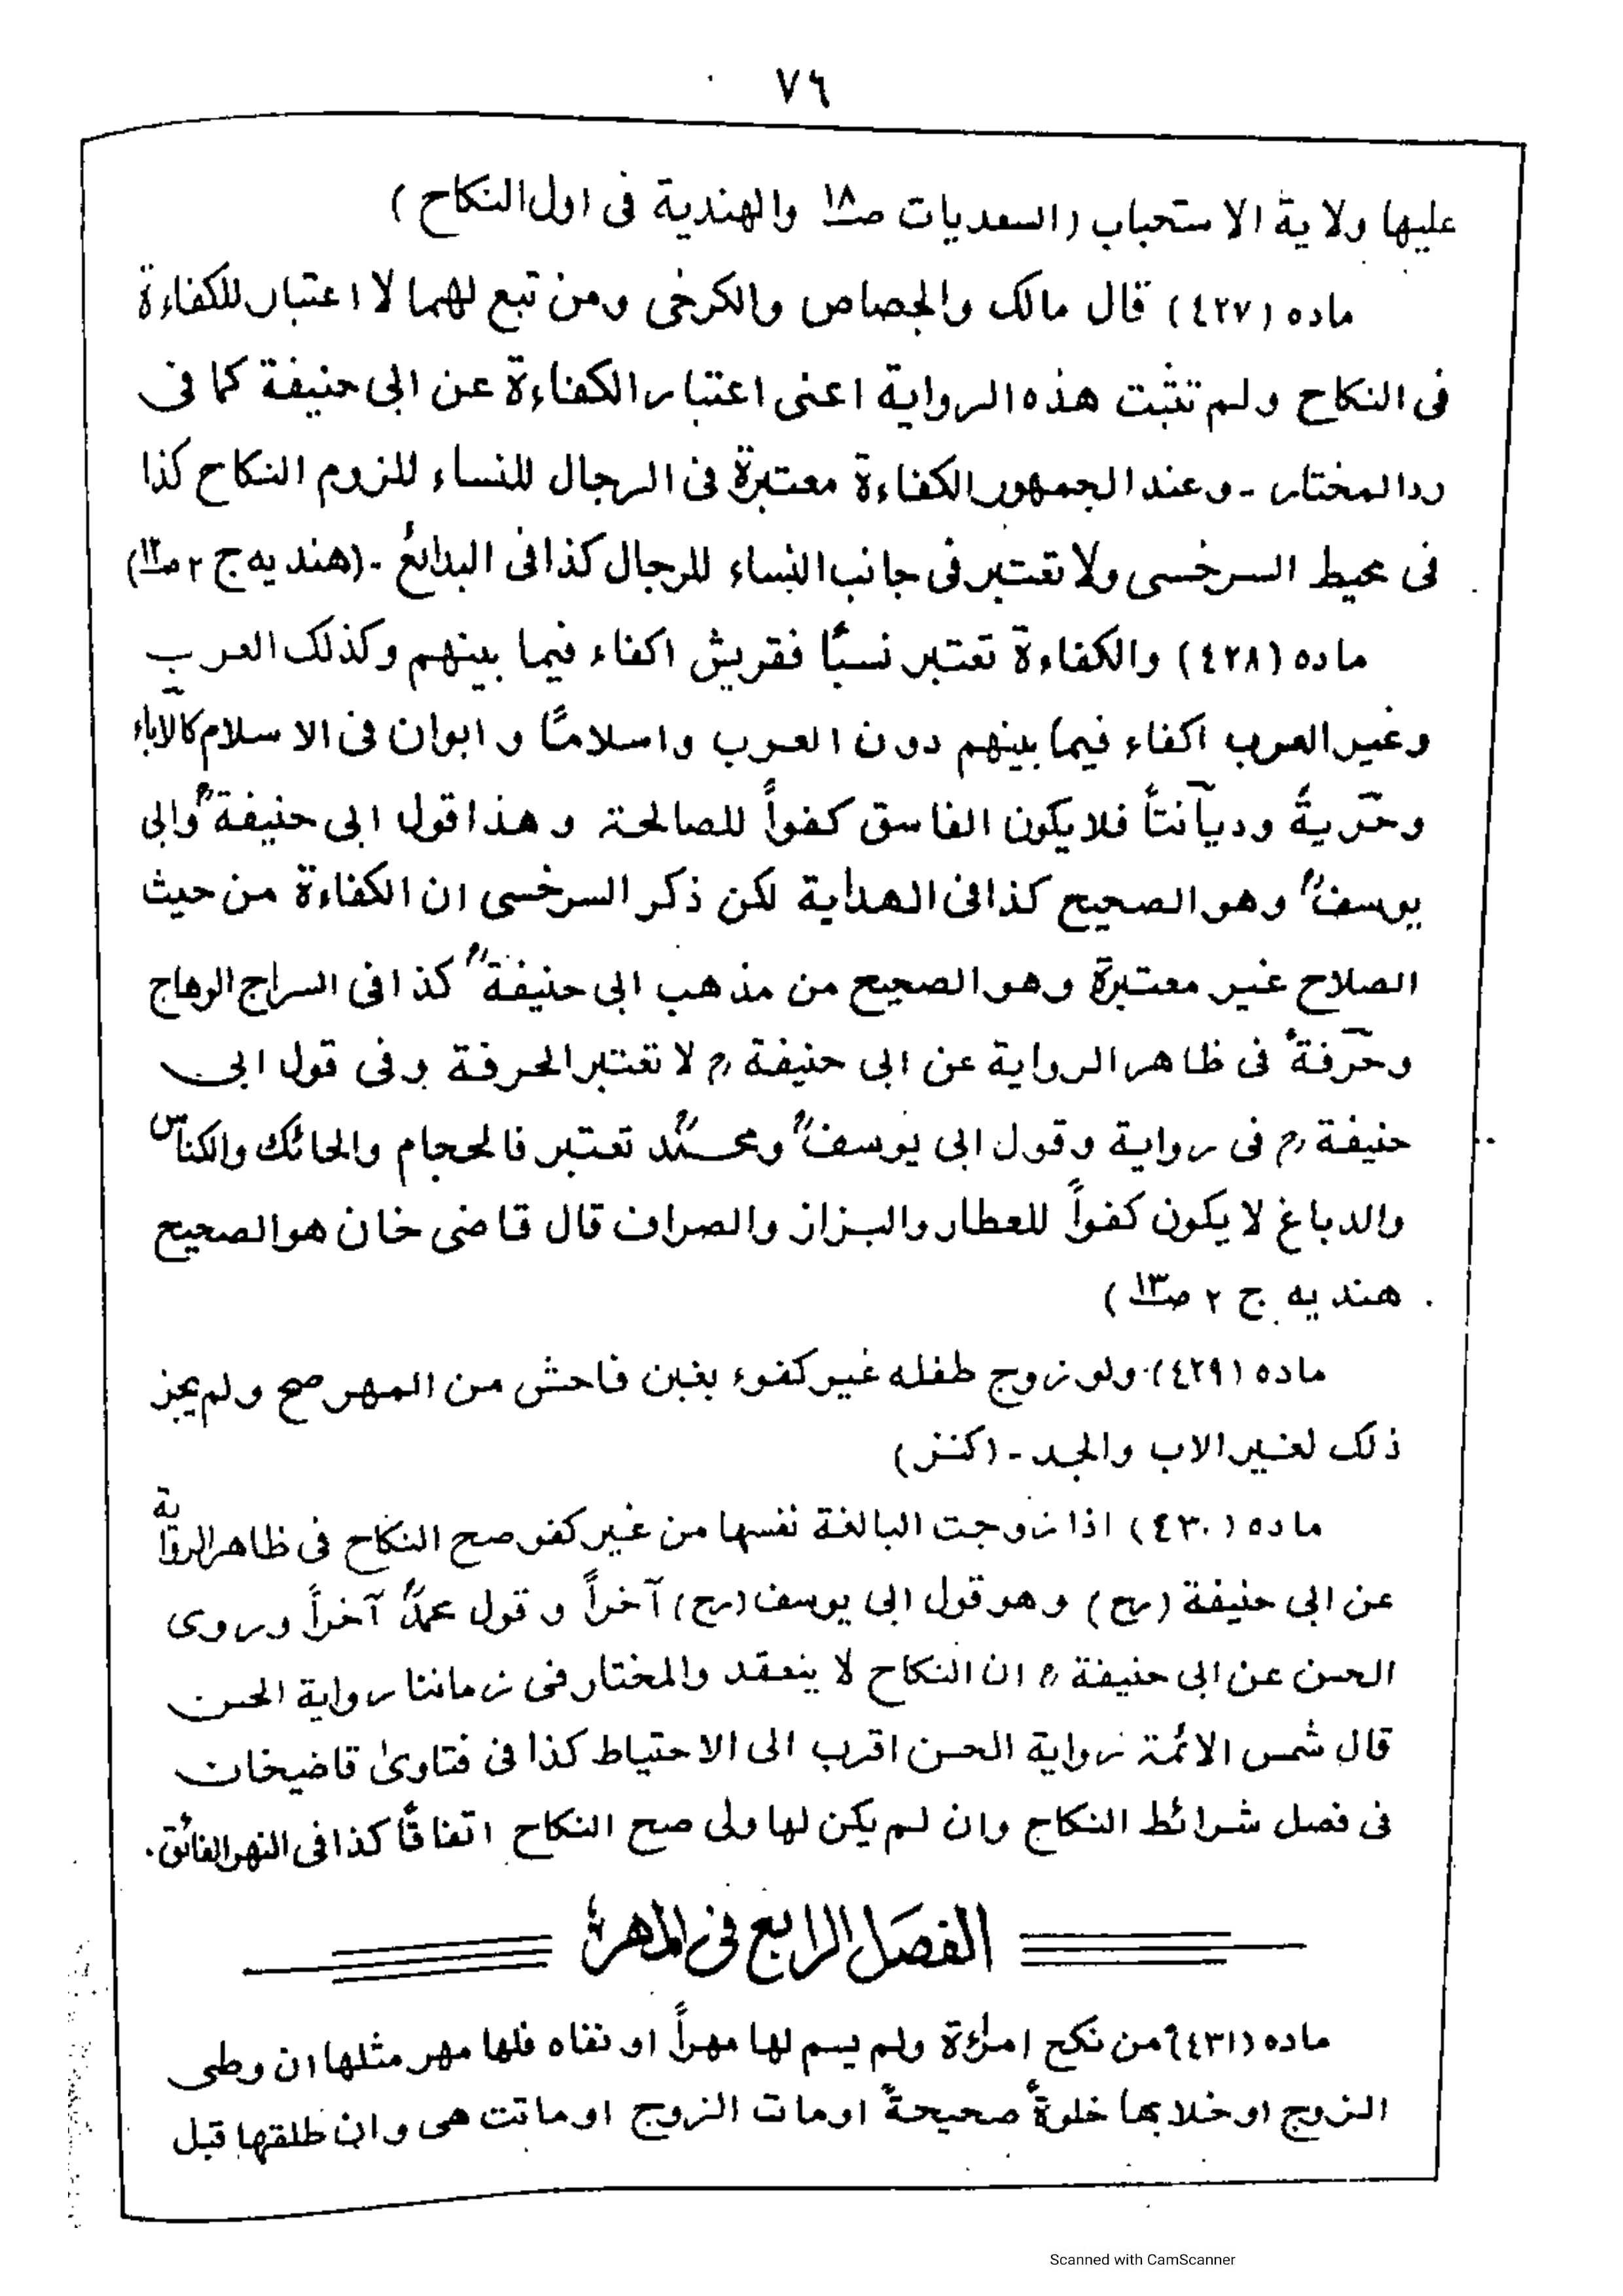 ٧٦
عليها ولاية الاستحباب (السعديات صـ١٨ والهندية فى اول النكاح)
ماده (٤٢٧) قال مالك والجصاص والكرخى ومن تبع لهما لا اعتبار للكفاءة
فى النكاح ولم تثبت هذه الرواية اعنى اعتبار الكفاءة عن ابى حنيفة كما فى
رد المختار - وعند الجمهور الكفاءة معتبرة فى الرجال للنساء للزوم النكاح كذا
فى محيط السرخسى ولا تعتبر فى جانب النساء للرجال كذا فى البدائع - (هنديه ج ٢ صـ١٢)
ماده (٤٢٨) والكفاءة تعتبر نسبًا فقريش اكفاء فيما بينهم وكذلك العرب
وغير العرب اكفاء فيما بينهم دون العرب واسلامًا و ابوان فى الاسلام كالآباء
وحرّيةً وديانتاً فلا يكون الفاسق كفواً للصالحة وهذا قول ابى حنيفةؒ وابى
يوسفؒ وهو الصحيح كذا فى الهداية لكن ذكر السرخسى ان الكفاءة من حيث
الصلاح غير معتبرة وهو الصحيح من مذهب ابى حنيفةؒ كذا فى السراج الوهاج
وحرفةً فى ظاهر الرواية عن ابى حنيفة ؒ لا تعتبر الحرفة وفى قول ابى
حنيفة ؒ فى رواية وقول ابى يوسفؒ ومحمدؒ تعتبر فالحجام والحائك والكناس
والدباغ لا يكون كفواً للعطار والبزاز والصراف قال قاضى خان هو الصحيح
هنديه ج ٢ صـ١٣)
ماده (٤٢٩) ولو زوج طفله غير كفوء بغبن فاحش من المهر صح ولم يجز
ذلك لغير الاب والجد - (كنز)
ماده (٤٣٠) اذا زوجت البالغة نفسها من غير كفو صح النكاح فى ظاهر الرواية
عن ابى حنيفة (رح) وهو قول ابى يوسف (رح) آخراً وقول محمدؒ آخراً وروى
الحسن عن ابى حنيفة ؒ ان النكاح لا ينعقد والمختار فى زماننا رواية الحسن
قال شمس الائمة رواية الحسن اقرب الى الاحتياط كذا فى فتاوىٰ قاضيخان
فى فصل شرائط النكاح وان لم يكن لها ولى صح النكاح اتفاقًا كذا فى النهر الفائق.
الفصل الرابع فى المهر
ماده (٤٣١) من نكح امرأة ولم يسم لها مهراً او نفاه فلها مهر مثلها ان وطى
الزوج او خلا بها خلوةً صحيحةً او مات الزوج او ماتت هى وان طلقها قبل
Scanned with CamScanner